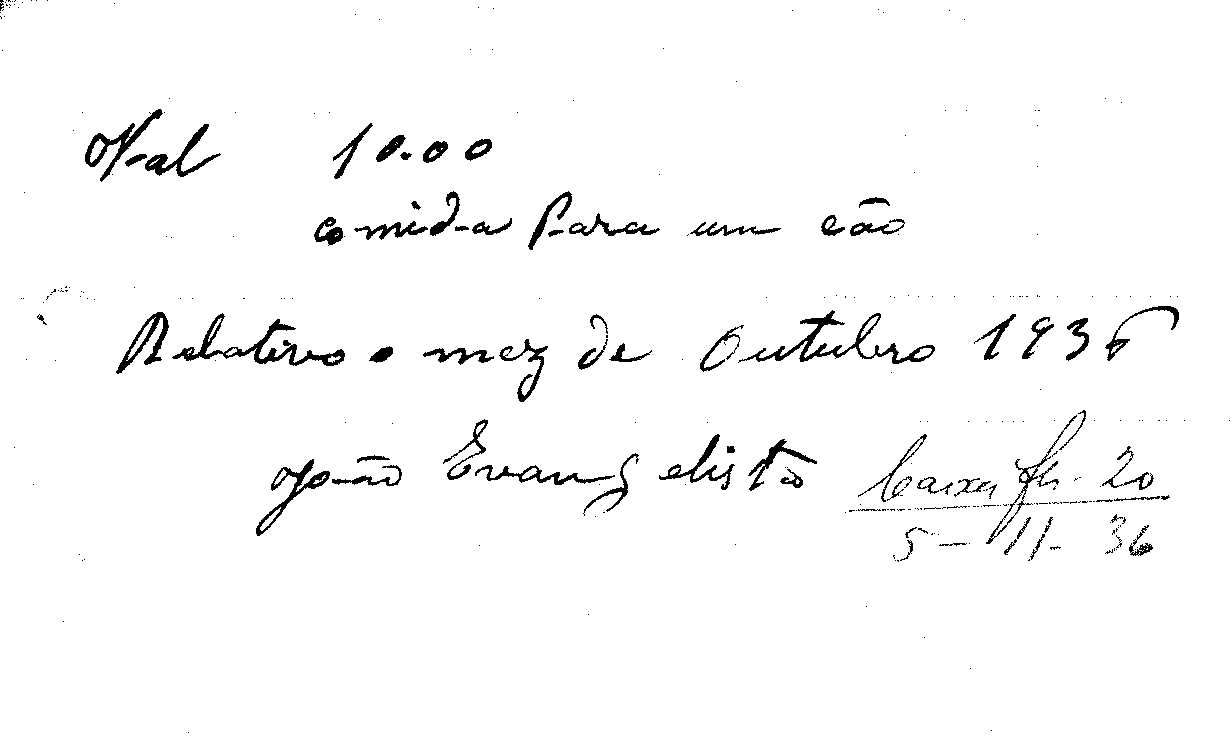 Val 10.00
comida Para um cão
Relativo o mez de Outubro 1936
João Evangelista
Caixa fls. 20
5-11-36